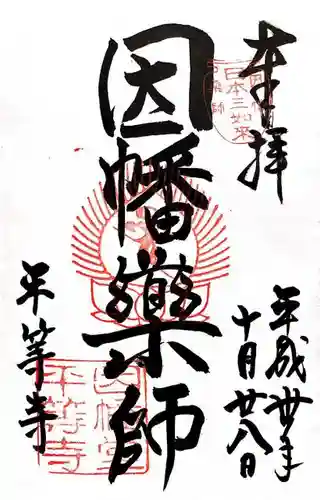 奉拝
日本三如来
平成卅年
十月廿八日
因幡薬師
平等寺
因幡堂
平等寺